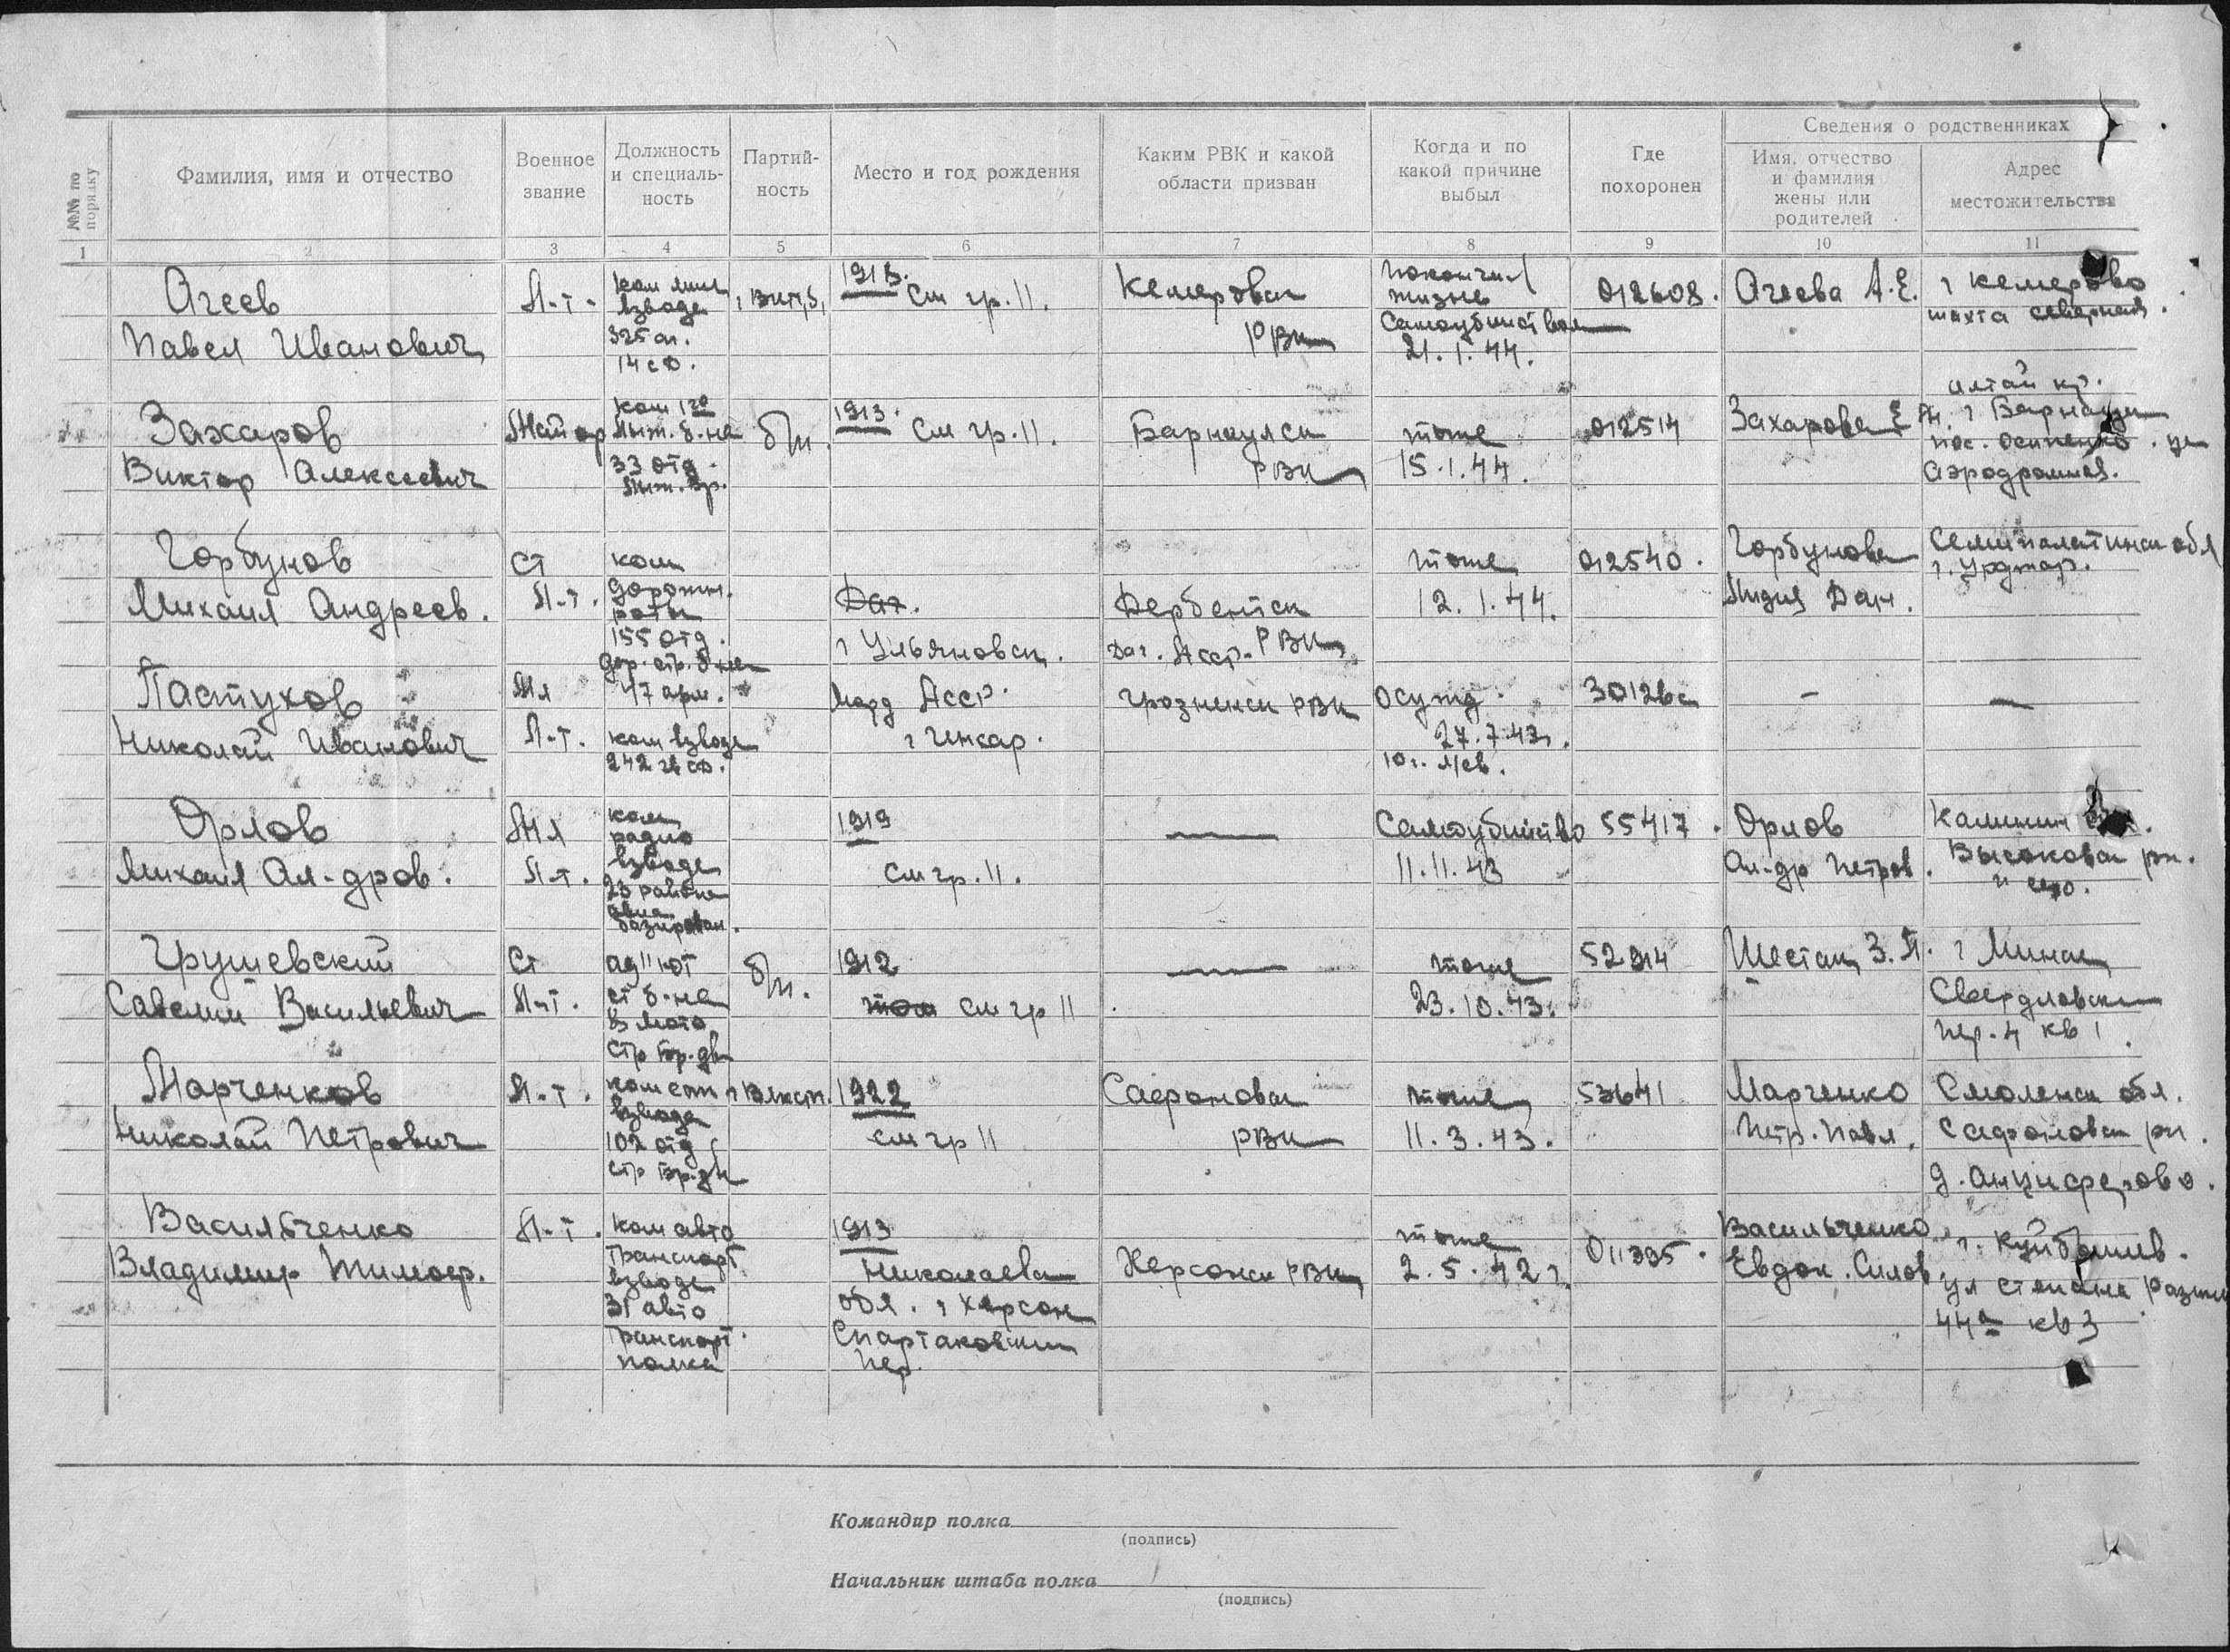 №№ по порядку
Фамилия, имя и отчество
Военное звание
Должность и специаль-ность
Партий-ность
Место и год рождения
Каким РВК и какой области призван
Когда и по какой причине выбыл
Где похоронен
Сведения о родственниках
Имя, отчество и фамилия жены или родителей
Адрес местожительства
1 2 3 4 5 6 7 8 9 10 11
Агеев
Павел Иванович
Л-т.
взвода
325 сп.
14 сд.
1913.
см гр. 11.
Кемеровск
РВК
покончил
жизнь
самоубийством
21.1.44.
012608.
Агеева А.Е.
г Кемерово
шахта северная.
Захаров
Виктор Алексеевич
Майор
ком 1го
инж. б-на
33 отд.
инж. бр.
б/п.
1913.
см гр. 11.
Барнаулск
РВК
тоже
15.1.44.
012514
Захарова
алтай кр.
г Барнаул
пос. Осипенко. ул
Аэродромная.
Горбунов
Михаил Андреев.
Ст
Л-т.
ком
дорожн.
роты
155 отд.
дор. стр. б-на
47 арм.
Даг.
г Ульяновск.
Дербентск
Даг. Асср. РВК
тоже
12.1.44.
012540.
Горбунова
Лидия Дан.
Семипалатинск обл
г. Урджар.
Пастухов
Николай Иванович
Мл
Л-т.
ком взвода
242 гв сп.
Морд Асср.
г Инсар.
Грозненск РВК
осужд.
27.7.43г.
3012вс
–
—
Орлов
Михаил Ал-дров.
Мл
Л-т.
ком
радио
взвода
23 района
авиа
базирован.
1919
см гр. 11.
—
Самоубийство
11.11.43
55417.
Орлов
Ал-др Петров.
Калинин
Высоковск рн.
Грушевский
Савелий Васильевич
Ст
Л-т.
ад"ют
ст б-на
мото
стр бр-ды
б/п.
1912
см гр 11
—
тоже
23.10.43.
52914
Шестак З.П.
г Минск
Свердловск
пер. 4 кв 1.
Марченков
Николай Петрович
Л-т.
взвода
102 отд
стр бр-ды
1922
см гр 11
Сафоновск
РВК
тоже
11.3.43.
53641
Марченко
Петр. Павл.
Смоленск обл.
Сафоновск рн.
д. Анциферово.
Васильченко
Владимир Тимоф.
Л-т.
ком авто
транспорт
взвода
31 авто
транспорт.
полка
1913
Николаевск
обл. г Херсон
Спартаковский
пер.
Херсонск РВК
тоже
2.5.42 г.
011395.
Васильченко
Евдок. Силов
г. Куйбышев.
ул Степана Разина
44а кв 3
Командир полка
(подпись)
Начальник штаба полка
(подпись)